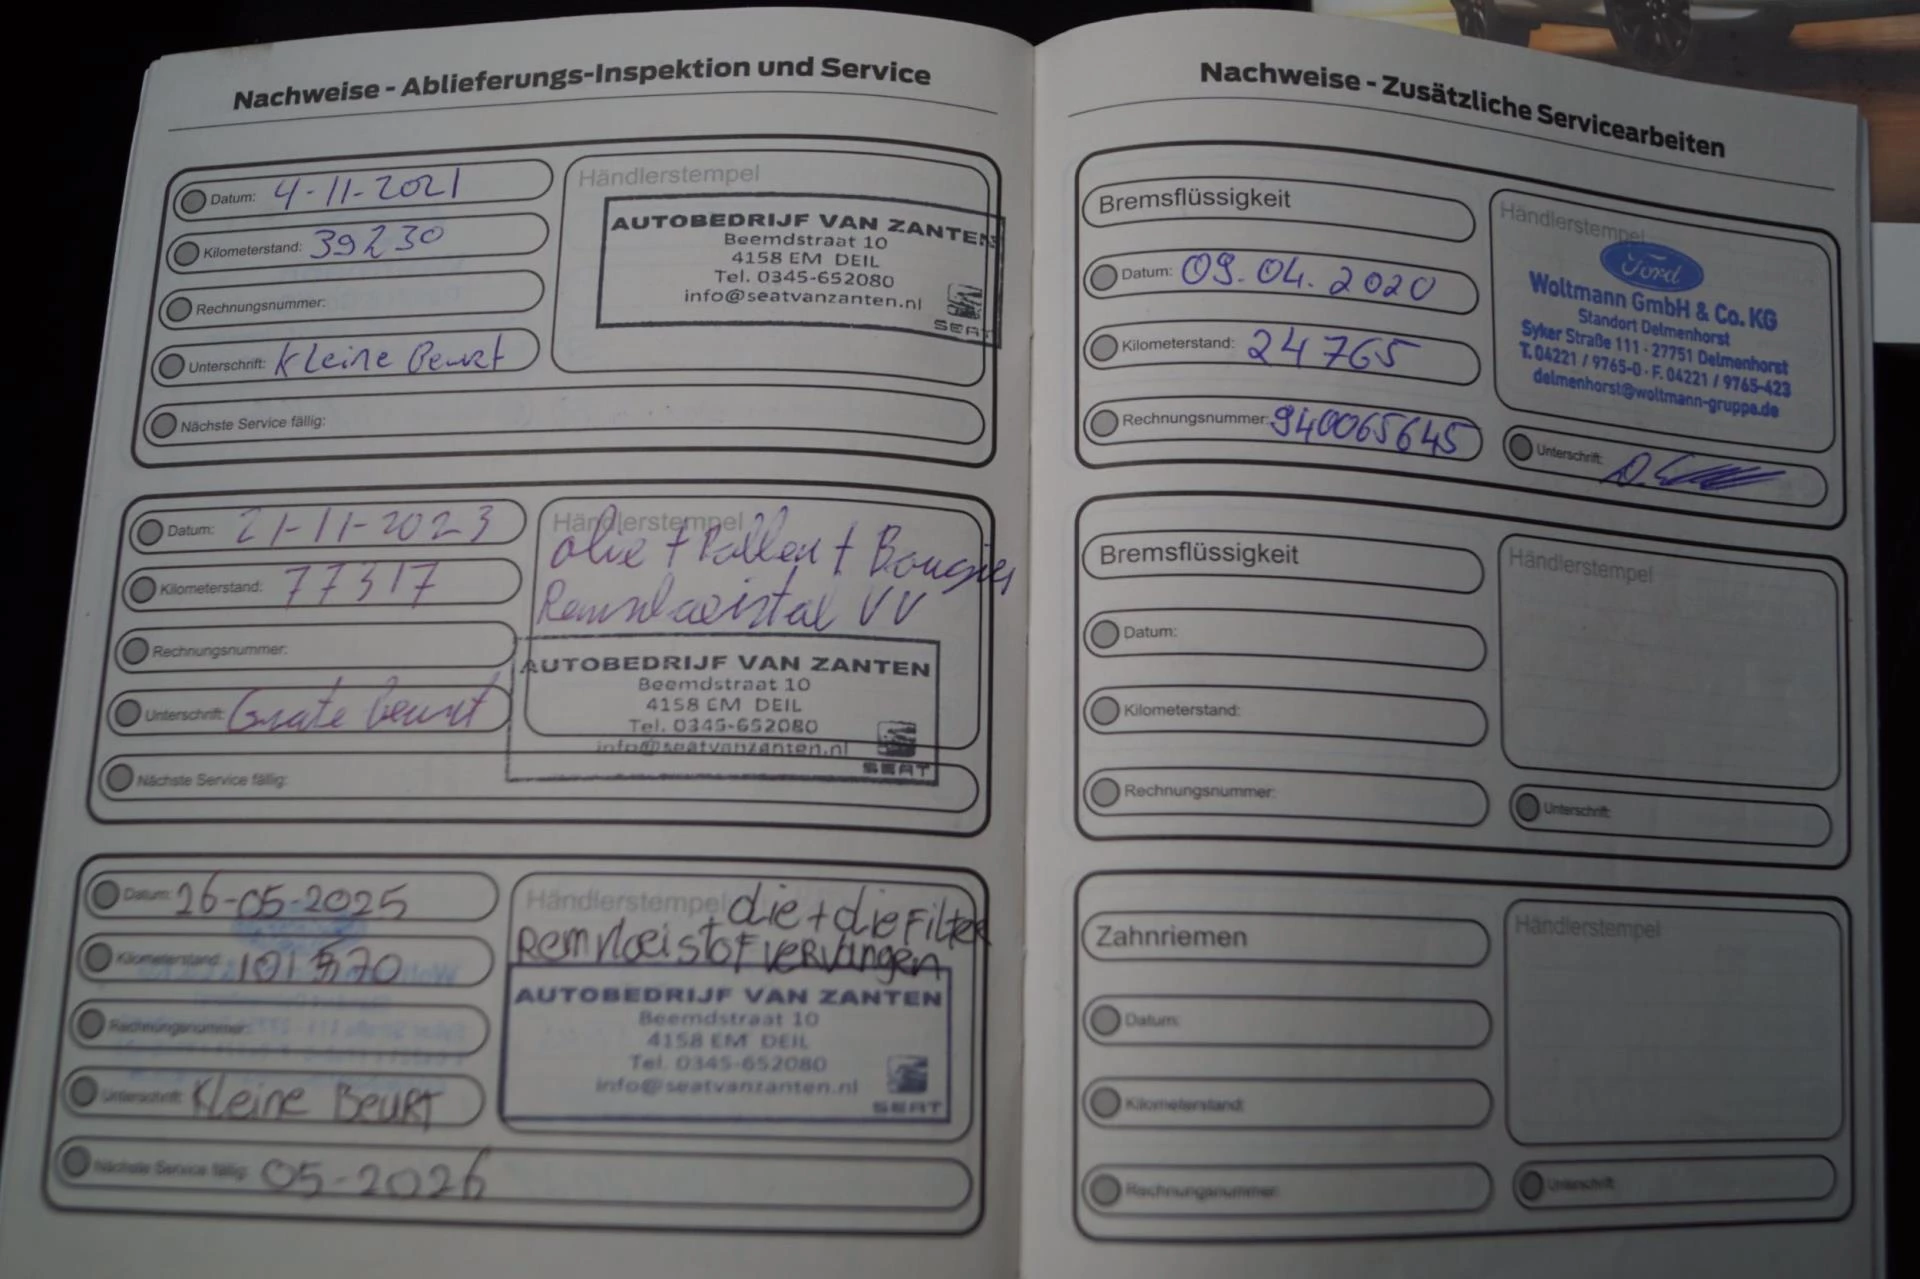 Nachweise - Ablieferungs-Inspektion und Service
Datum: 4-11-2021
Kilometerstand: 39230
Rechnungsnummer:
Unterschrift: Kleine Beurt
Nächste Service fällig:
Händlerstempel
AUTOBEDRIJF VAN ZANTEN
Beemdstraat 10
4158 EM DEIL
Tel. 0345-652080
info@seatvanzanten.nl
SEAT
Datum: 21-11-2023
Kilometerstand: 77317
Rechnungsnummer:
Unterschrift: Grote Beurt
Nächste Service fällig:
Händlerstempel
olie + Pollen + Bougies
VV
AUTOBEDRIJF VAN ZANTEN
Beemdstraat 10
4158 EM DEIL
Tel. 0345-652080
info@seatvanzanten.nl
SEAT
Datum: 26-05-2025
Kilometerstand:
Rechnungsnummer:
Unterschrift: Kleine Beurt
Nächste Service fällig: 05-2026
Händlerstempel olie + olieFilter
Remvloeistof vervangen
AUTOBEDRIJF VAN ZANTEN
Beemdstraat 10
4158 EM DEIL
Tel. 0345-652080
info@seatvanzanten.nl
SEAT
Nachweise - Zusätzliche Servicearbeiten
Bremsflüssigkeit
Datum: 09.04.2020
Kilometerstand: 24765
Rechnungsnummer: 940065645
Händlerstempel
Ford
Woltmann GmbH & Co. KG
Standort Delmenhorst
Syker Straße 111 · 27751 Delmenhorst
T. 04221 / 9765-0 · F. 04221 / 9765-423
delmenhorst@woltmann-gruppe.de
Unterschrift:
Bremsflüssigkeit
Datum:
Kilometerstand:
Rechnungsnummer:
Händlerstempel
Unterschrift:
Zahnriemen
Datum:
Kilometerstand:
Rechnungsnummer:
Händlerstempel
Unterschrift: